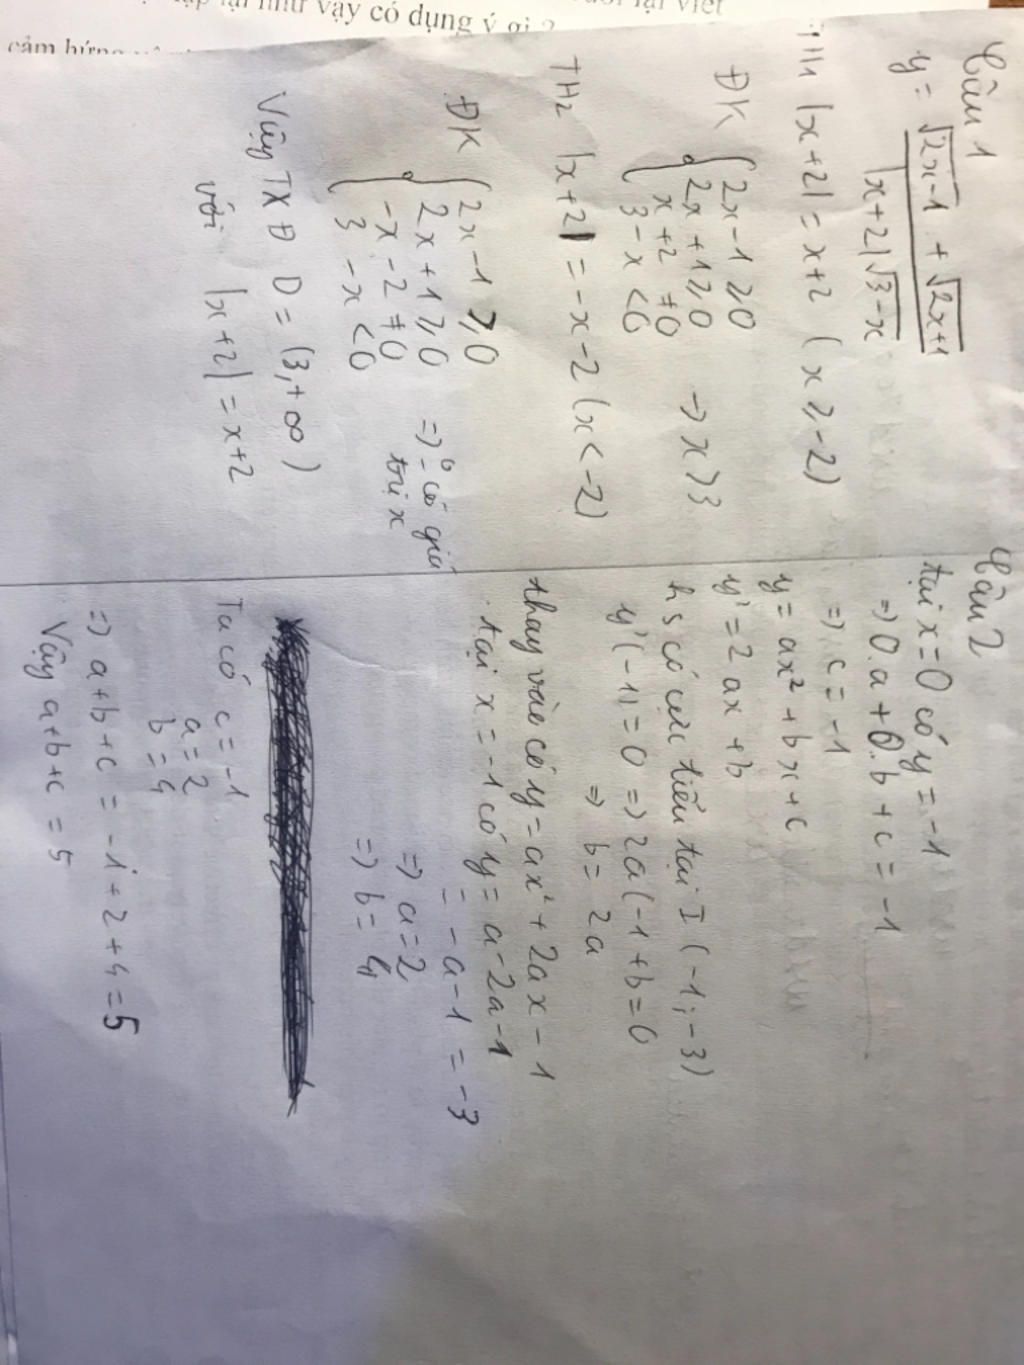 lại như vậy có dụng ý gì ?
lại viết
cảm hứng
Câu 1
y = √2x-1 + √2x+1
|x+2|√3-x
TH1 |x+2| = x+2 ( x ≥ -2)
ĐK { 2x-1 ≥ 0
2x+1 ≥ 0 → x > 3
x+2 ≠ 0
3-x < 0
TH2 |x+2| = -x-2 (x < -2)
ĐK { 2x-1 ≥ 0
2x+1 ≥ 0 => có giá
-x-2 ≠ 0 trị x
3-x < 0
Vậy TXĐ D = (3,+∞)
với |x+2| = x+2
Câu 2
tại x=0 có y = -1
=> 0.a + 0.b + c = -1
=> c = -1
y = ax² + bx + c
y' = 2ax + b
hs có cực tiểu tại I (-1;-3)
y'(-1) = 0 => 2a(-1+b=0
=> b = 2a
thay vào có y = ax² + 2ax - 1
tại x = -1 có y = a-2a-1
= -a-1 = -3
=> a=2
=> b= 4
Ta có c = -1
a = 2
b = 4
=> a+b+c = -1+2+4=5
Vậy a+b+c = 5